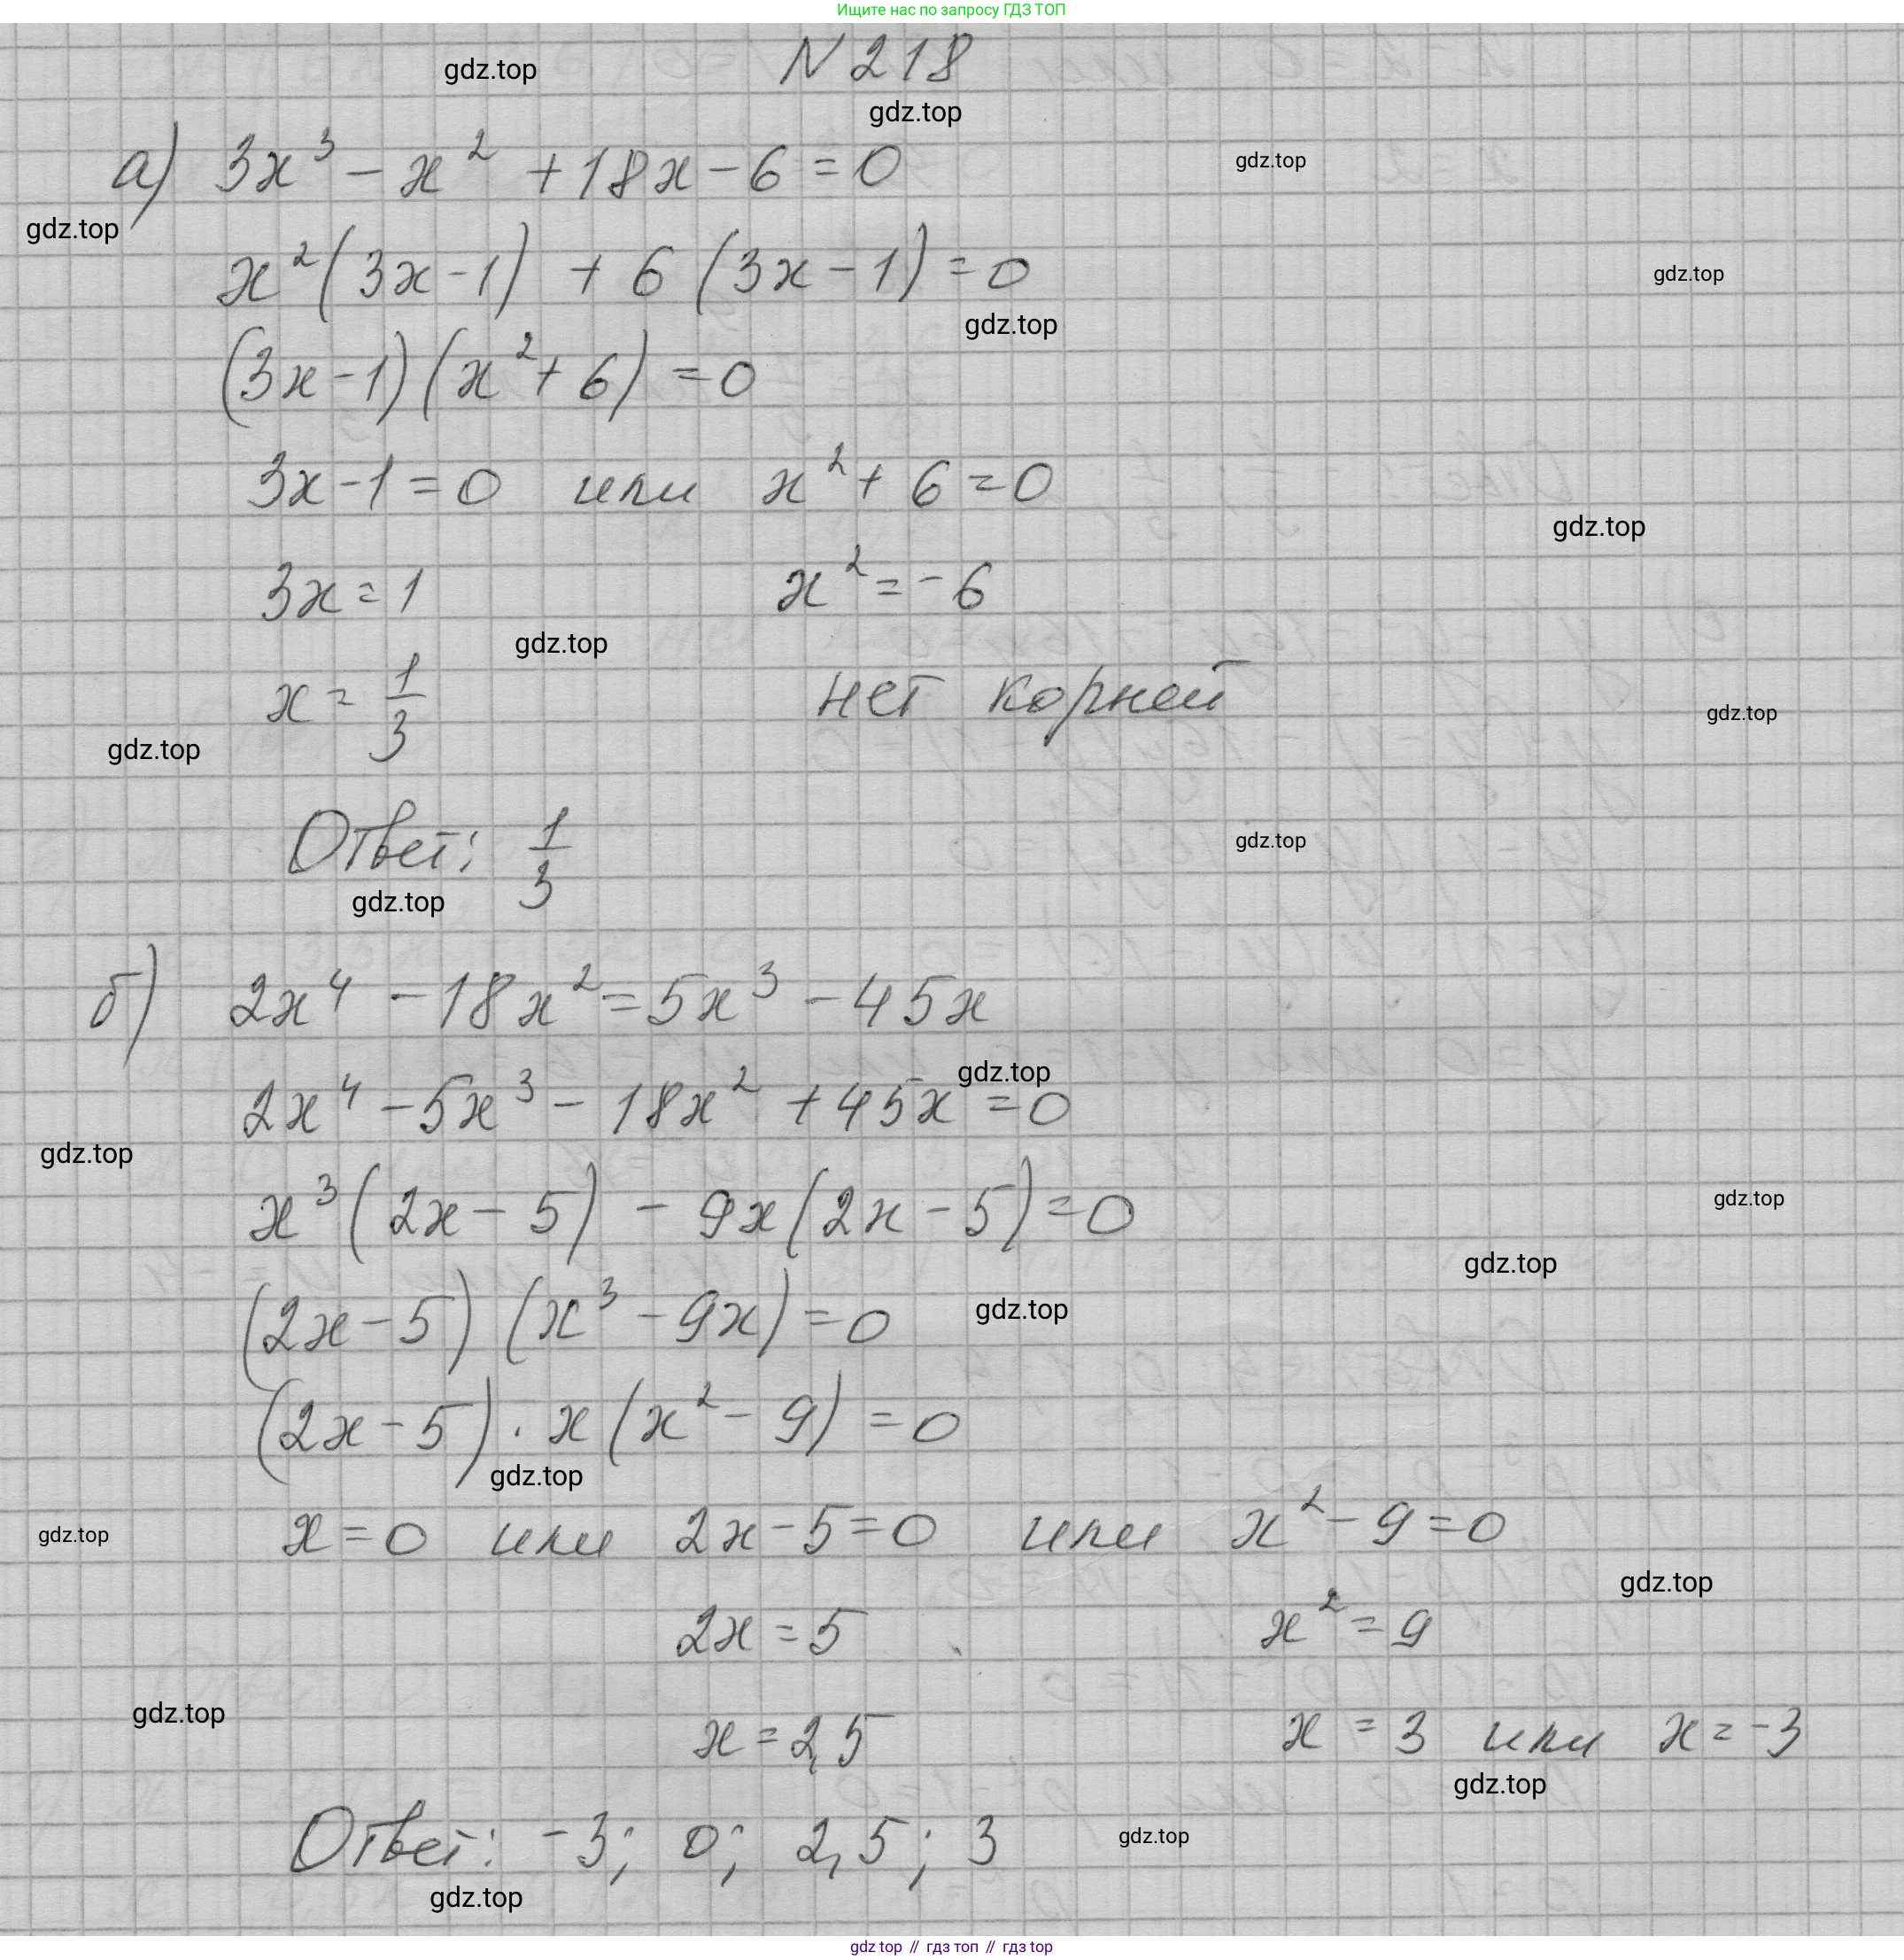 Ищите нас по запросу ГДЗ ТОП
N 218
gdz.top
gdz.top
а) 3x³ - x² + 18x - 6 = 0
gdz.top
gdz.top
x²(3x-1) + 6(3x-1) = 0
gdz.top
gdz.top
(3x-1)(x²+6) = 0
3x-1=0 или x²+6=0
gdz.top
3x=1 x²=-6
gdz.top
x = 1/3 нет корней
gdz.top
gdz.top
Ответ: 1/3
gdz.top
gdz.top
б) 2x⁴ - 18x² = 5x³ - 45x
gdz.top
2x⁴ - 5x³ - 18x² + 45x = 0
gdz.top
gdz.top
x³(2x-5) - 9x(2x-5) = 0
gdz.top
(2x-5)(x³-9x) = 0
gdz.top
(2x-5)·x(x²-9) = 0
gdz.top
gdz.top
x=0 или 2x-5=0 или x²-9=0
gdz.top
2x=5 x²=9
gdz.top
x=2,5 x=3 или x=-3
gdz.top
Ответ: -3; 0; 2,5; 3
gdz.top
gdz.top
gdz top // гдз топ // гдз top